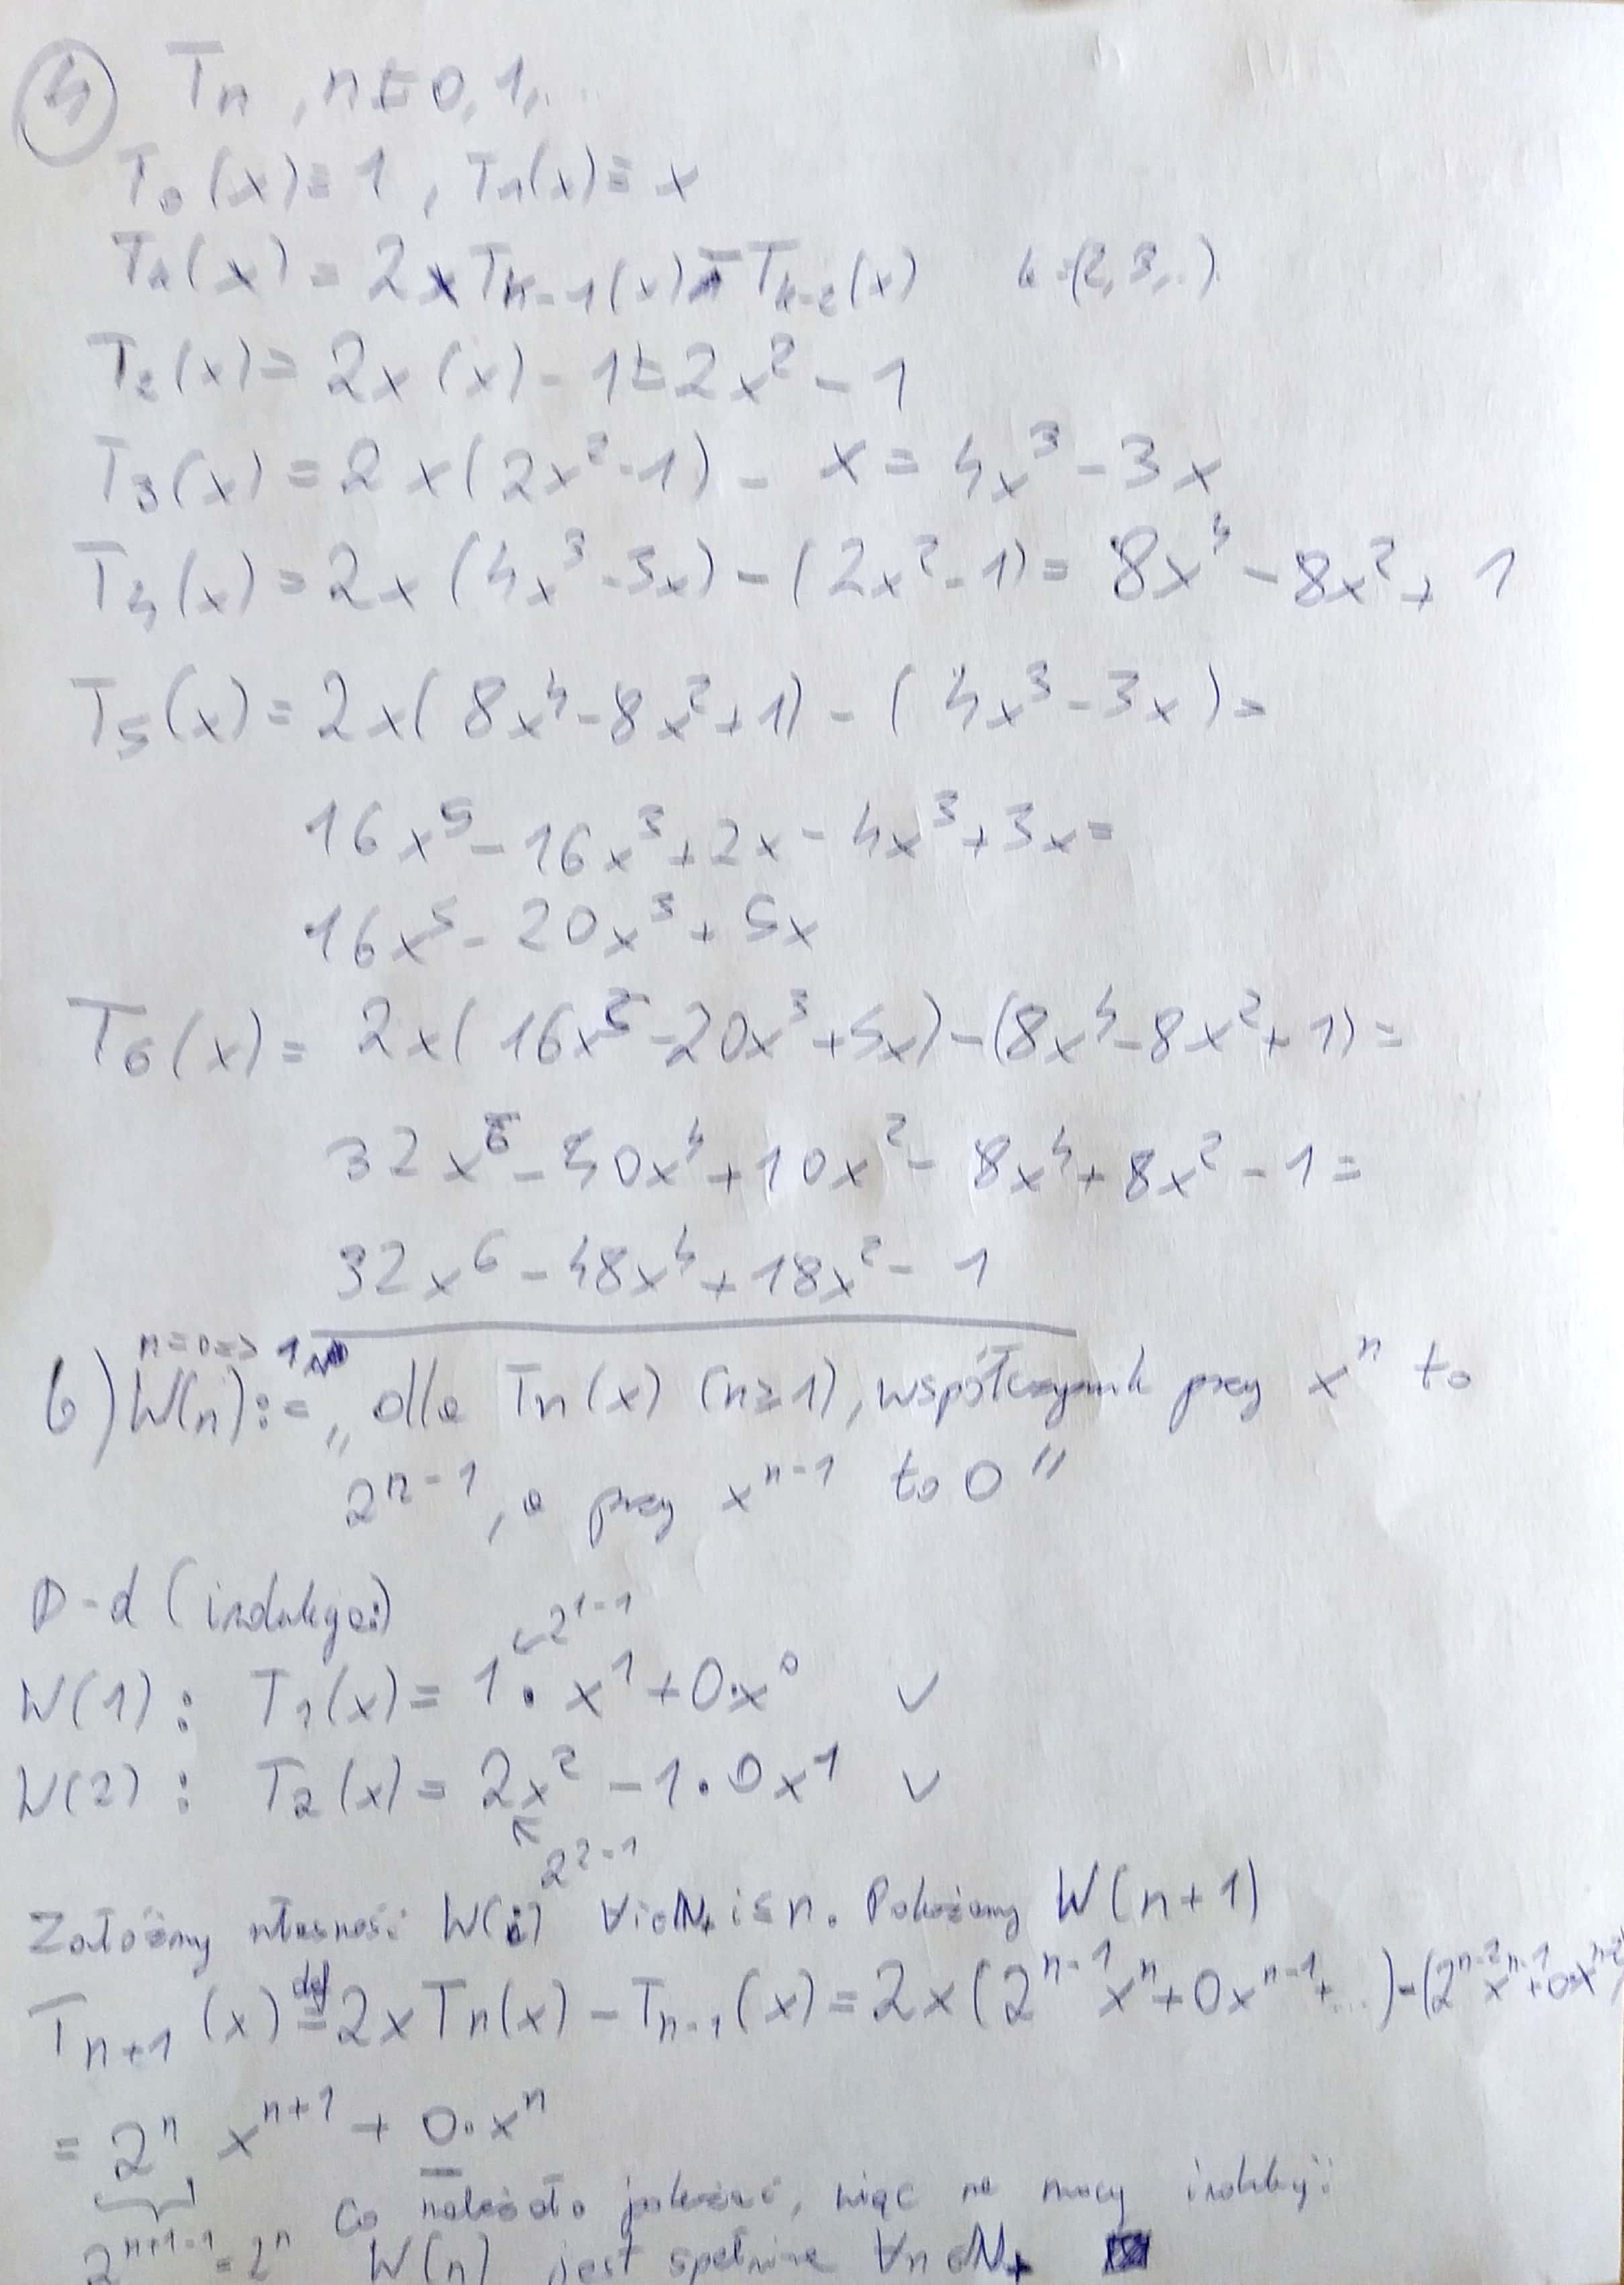 4 Tn, n = 0, 1, ...
T₀(x) = 1, T₁(x) = x
Tₖ(x) = 2xTₖ₋₁(x) - Tₖ₋₂(x) k = (2, 3, ..)
T₂(x) = 2x(x) - 1 = 2x² - 1
T₃(x) = 2x(2x² - 1) - x = 4x³ - 3x
T₄(x) = 2x(4x³ - 3x) - (2x² - 1) = 8x⁴ - 8x² + 1
T₅(x) = 2x(8x⁴ - 8x² + 1) - (4x³ - 3x) =
16x⁵ - 16x³ + 2x - 4x³ + 3x =
16x⁵ - 20x³ + 5x
T₆(x) = 2x(16x⁵ - 20x³ + 5x) - (8x⁴ - 8x² + 1) =
32x⁶ - 40x⁴ + 10x² - 8x⁴ + 8x² - 1 =
32x⁶ - 48x⁴ + 18x² - 1
n = 0 => 1
b) W(n) := „dla Tn(x) (n ≥ 1), współczynnik przy xⁿ to
2ⁿ⁻¹, a przy xⁿ⁻¹ to 0"
D-d (indukcja)
← 2¹⁻¹
W(1): T₁(x) = 1 · x¹ + 0·x⁰ ✓
W(2): T₂(x) = 2x² - 1 · 0x¹ ✓
↖ 2²⁻¹
Załóżmy własność W(i) ∀i∈N₊ i ≤ n. Pokażemy W(n+1)
Tₙ₊₁(x) def= 2xTₙ(x) - Tₙ₋₁(x) = 2x(2ⁿ⁻¹xⁿ + 0xⁿ⁻¹ + ...) - (2ⁿ⁻²xⁿ⁻¹ + 0·xⁿ⁻²
= 2ⁿ xⁿ⁺¹ + 0·xⁿ
co należało pokazać, więc na mocy indukcji
2ⁿ⁺¹⁻¹ = 2ⁿ W(n) jest spełnione ∀n∈N₊